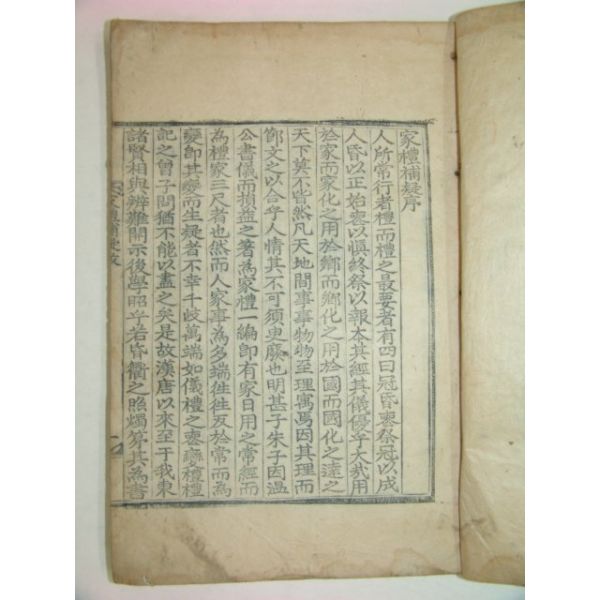 家禮補疑序
人所常行者禮而禮之最要者有四曰冠昏喪祭冠以成
人昏以正始喪以愼終祭以報本其經其儀傷乎大哉用
於家而家化之用於鄕而鄕化之用於國而國化之遠之
天下莫不皆然凡天地間事事物物至理寓焉因其理而
節文之以合乎人情其不可須臾廢也明甚子朱子因溫
公書儀而損益之著爲家禮一編卽有家日用之常經而
為禮家三尺者也然而人家事為多端徃徃反於常而為
變卽其變而生疑者不幸千歧萬端如儀禮之喪變禮禮
記之曾子問猶不能以盡之矣是故漢唐以來至于我東
諸賢相與辨難開示後學昭乎若昏衢之照燭算其為書
家禮補疑序
一